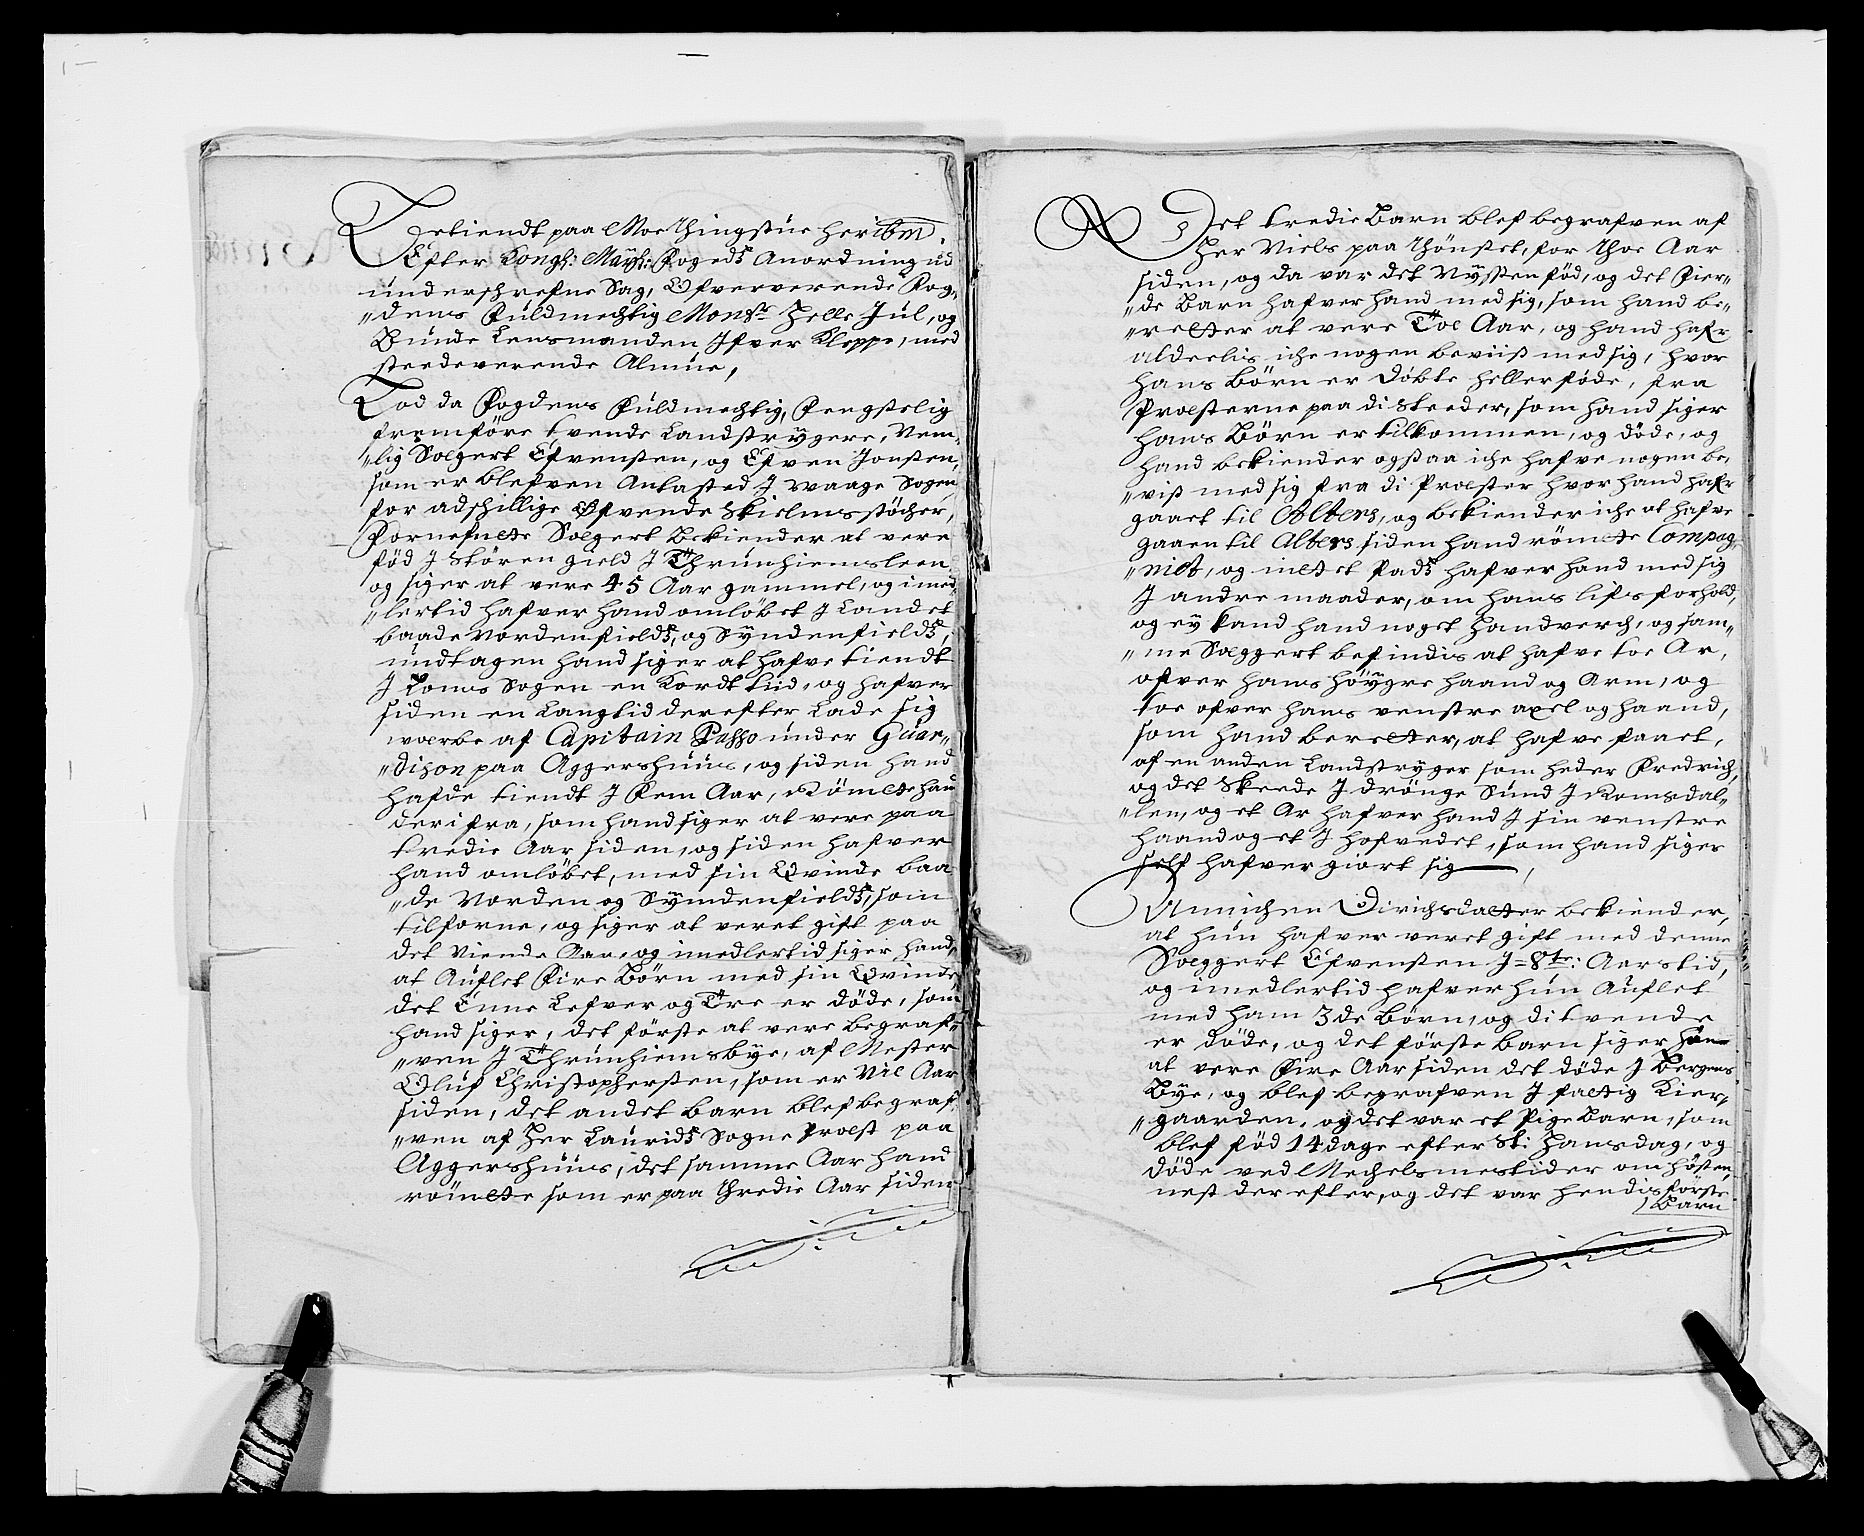 Betiendt paa Moe Thingstue her ibm.
Efter Kongh: Mayts: Fogeds Anordning ud
underschrefne Sag, Ofververende Fog„
„dens Fuldmechtig Monsr Jelle Jul, og
Bunde Lensmanden Ifver Kleppe, med
steedeverende Almue,
Lod da Fogdens Fuldmechtig, Fengstelig
fremføre tvende Landstrygere, Nem„
„lig Sølgert Efvensten, og Efven Jonsten,
som er blefven Antasted I Waage Sogen
for adskillige Øfvende Skielmsstöcher,
Fornefnete Sølgert Bekiender at vere
föd I Stören gield I Thrunhiemsleen
og siger at vere 45 Aar gammel, og imed„
„lertid hafver hand omlöbet I Landet
baade Nordenfields, og Syndenfields,
undtagen hand siger at hafve tiendt
I Loms Sogen en Kordt tiid, og hafver
siden en Langtid derefter Lade sig
woerbe af Capitain Passo under Guar„
„dizon paa Aggershuus, og siden hand
hafde tiendt I Fem Aar, Römete hand
derifra, som hand siger at vere paa
tredie Aar siden, og siden hafver
hand omlöbet, med sin Qvinde baa
„de Norden og Syndenfields, som
tilforne, og siger at veret gift paa
det Niende Aar, og imedlertid siger hand,
at Auflet Fire Börn med sin Qvinde
det Enne Lefver og Tre er döde, som
hand siger, det förste at vere begraf„
„ven I Thrunhiemsbye, af Mester
Oluf Christophersten, som er Nie Aar
siden, det andet barn blef begraf„
„ven af Her Laurids Sogne Proest paa
Aggershuus, det samme Aar hand
römete som er paa thredie Aar siden
Det tredie Barn blef begrafven af
Her Niels paa Thönstet, for thoe Aar
siden, og da var det Nysten föd, og det Fier„
„de Barn hafver hand med sig, som hand be„
„retter at vere Toe Aar, og hand hafr
alderlis iche nogen beviiß med sig, hvor
hans Börn er döbte heller föde, fra
Proesterne paa di Steeder, som hand siger
hans Börn er tilkommen, og döde, og
hand bekiender ogsaa iche hafve nogen be„
„viß med sig fra di Proester hvor hand hafr
gaaet til Alters, og bekiender iche at hafve
gaaen til Alters siden hand römete Compag„
„niet, og intet Pads hafver hand med sig
I andre maader, om hans lifs forhold,
og ey kand hand noget Handverch, og sam„
„me Sølggert befindis at hafve toe Ar,
ofver hans höygre haand og Arm, og
toe ofver hans venstre axel og haand,
som hand beretter, at hafve faaet,
af en anden Landstryger som heder Fredrich,
og det Skeede I drönge Sund I Romsdal„
„len, og et Ar hafver hand I sin venstre
haand og et I hofvedet, som hand siger
self hafver giort sig,
Annichen Dirichsdatter bekiender,
at hun hafver veret gift med denne
Sølggert Efvensten I 8te: Aarstid,
og imedlertid hafver hun Auflet
med ham 3de Börn, og di tvende
er döde, og det förste barn siger hun
at vere Fire Aar siden det döde I Bergens
Bye, og blef begrafven I fattig Kier„
„gaarden, og det var et Pige Barn, som
blef föd 14 dage efter St: Hansdag, og
döde ved Mechelsmestider om hösten,
nest der efter, og det var hendis förste
Barn